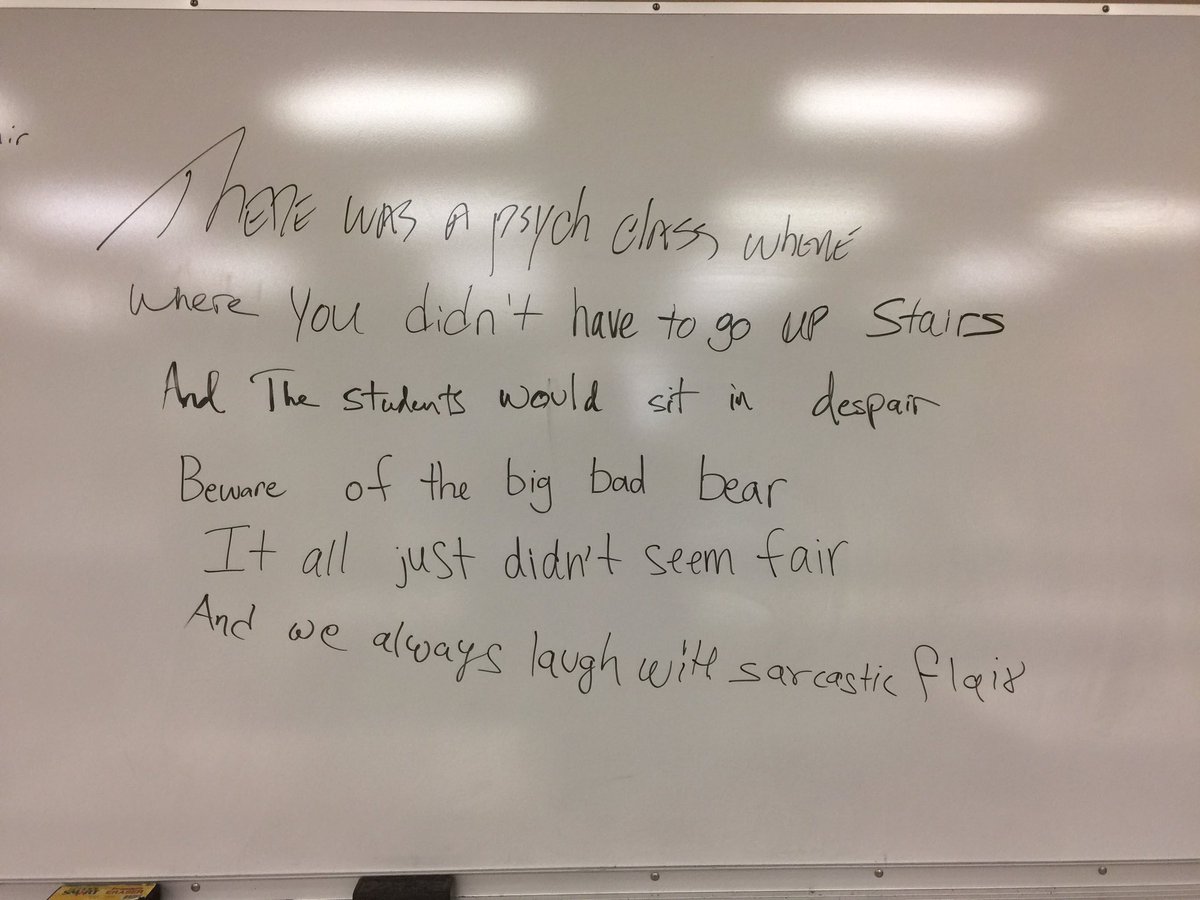 ir
There was a psych class where
where you didn't have to go up stairs
And The students would sit in despair
Beware of the big bad bear
It all just didn't seem fair
And we always laugh with sarcastic flair